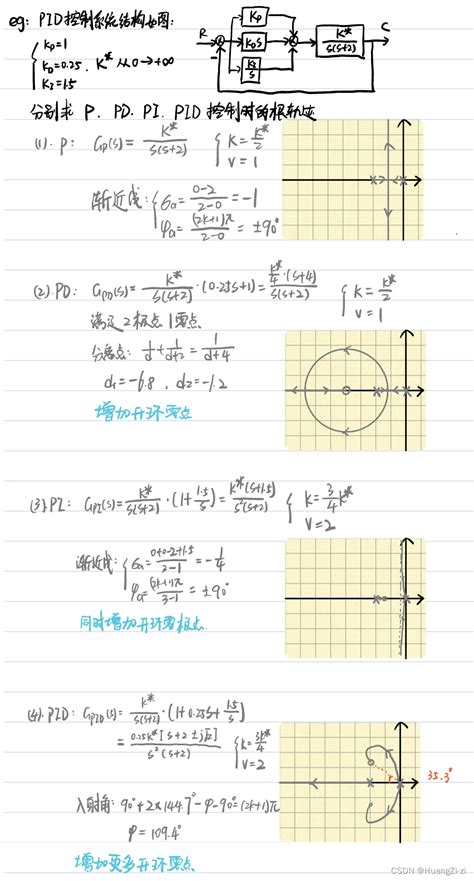 eg: PID控制系统结构如图:
{ Kp=1
KD=0.25 . K* 从0→+∞
KI=1.5
R Kp KDS KI/S K*/S(S+2) C
分别求 P. PD. PI. PID 控制时的根轨迹
(1). P: Gp(s)= K*/S(S+2) { K=K*/2 V=1
渐近线: { σa= 0-2/2-0 =-1
φa= (2k+1)π/2-0 = ±90°
(2). PD: GPD(s)= K*/S(S+2) · (0.25S+1)= K*/4·(S+4)/S(S+2) { K=K*/2 V=1
满足2极点1零点
分离点: 1/d + 1/d+2 = 1/d+4
d1=-6.8 , d2=-1.2
增加开环零点
(3). PI: GPI(s)= K*/S(S+2) · (1+ 1.5/S)= K*(S+1.5)/S²(S+2) { K=3/4K* V=2
渐近线: { σa= 0+0-2+1.5/2-1 = -1/4
φa= (2k+1)π/3-1 = ±90°
同时增加开环零极点.
(4). PID: GPID(s)= K*/S(S+2) · (1+0.25S+ 1.5/S)
= 0.25K*[S+2±j√2]/S²(S+2) { K=3K*/4 V=2
35.3°
入射角: 90°+2×144.7°-φ-90°=(2k+1)π
φ=109.4°
增加更多开环零点
CSDN @HuangZi-zi